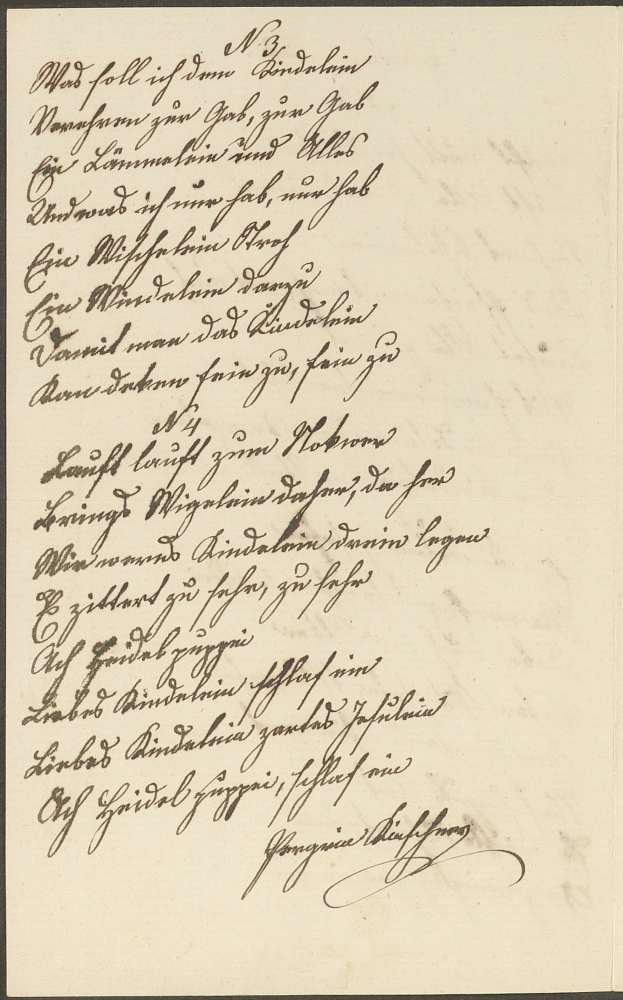 N 3
Was soll ich dem Kindelein
Verehren zur Gab, zur Gab
Ein Lämmelein und Alles
Und was ich nur hab, nur hab
Ein Wischelein Stroh
Ein Windelein darzu
Damit man das Kindelein
Kan deken fein zu, fein zu
N 4
Lauft lauft zum
Brings Wigelein daher, da her
Wir werns Kindelein drein legen
Es zittert zu sehr, zu sehr
Ach Heidel puppei
Liebes Kindelein schlaf ein
Liebes Kindelein zartes Jesulein
Ach Heidel puppei, schlaf ein